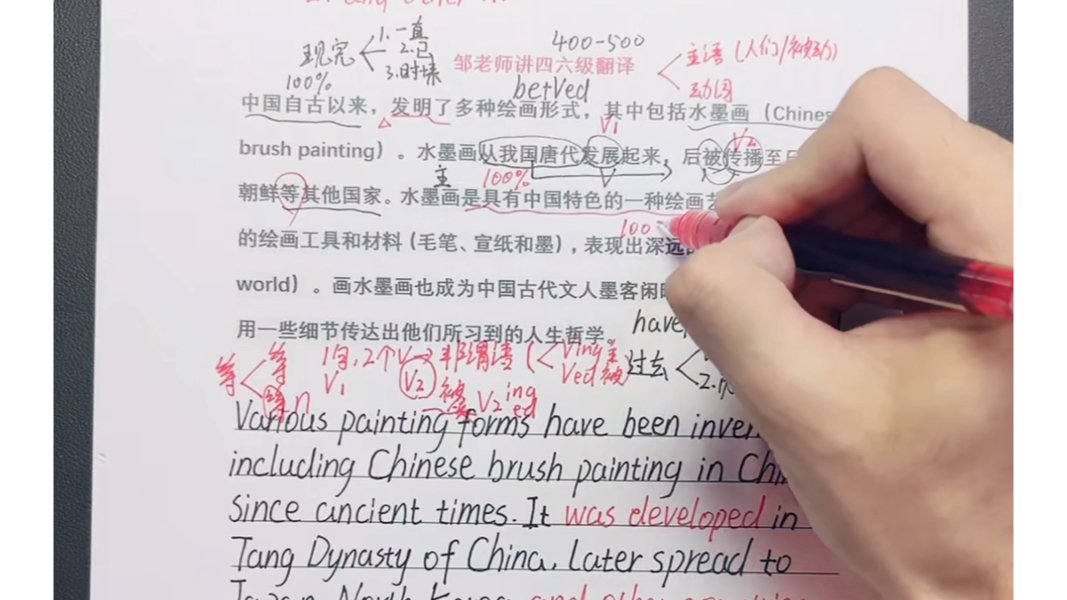 400-500
现完
1.一直
2.已
3.时候
100%
邹老师讲四六级翻译
主语(人们/被动)
动词
be+Ved
中国自古以来，发明了多种绘画形式，其中包括水墨画（Chinese
V1
V2
brush painting）。水墨画从我国唐代发展起来，后被传播至
主
100%
V
朝鲜等其他国家。水墨画是具有中国特色的一种绘画
100
的绘画工具和材料（毛笔、宣纸和墨），表现出深远
world）。画水墨画也成为中国古代文人墨客闲
用一些细节传达出他们所习到的人生哲学。
have
等
等
等n
1句,2个V→非谓语(
Ving主
Ved被
过去
1.
2.
V1
V2
被
V2 ing
ed
Various painting forms have been inven
including Chinese brush painting in Chi
since ancient times. It was developed in
Tang Dynasty of China. Later spread to
Japan, North Korea and other countries